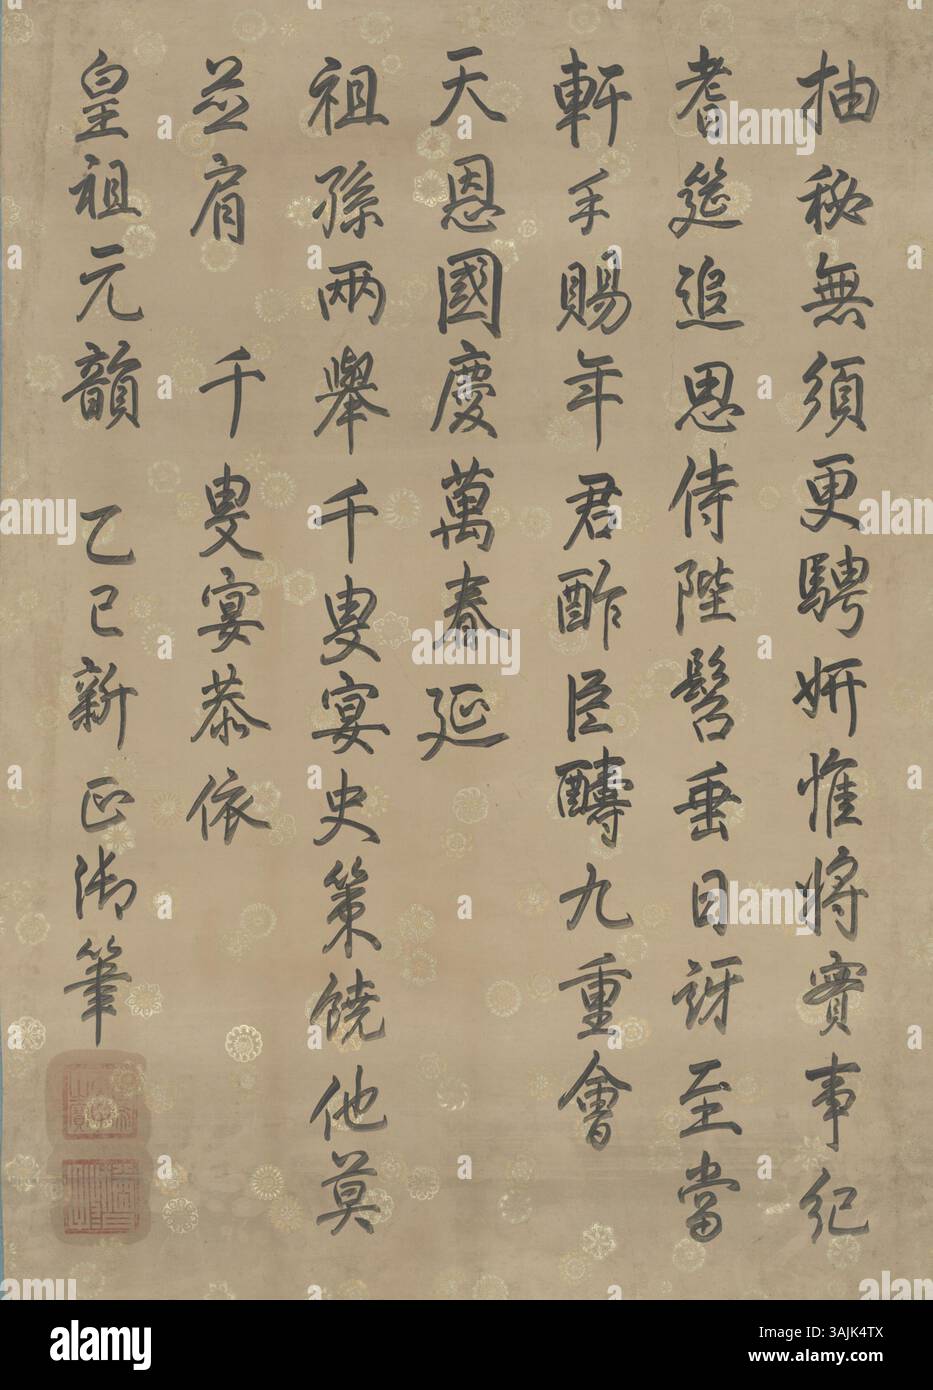 抽秘無須更騁妍惟將實事紀
耆筵追思侍陛髫垂日訝至當
軒手賜年君酢臣醻九重會
天恩國慶萬春延
祖孫兩舉千叟宴史策饒他莫
並肩 千叟宴恭依
皇祖元韻 乙巳新正御筆
alamy
Image ID: 3AJK4TX
www.alamy.com